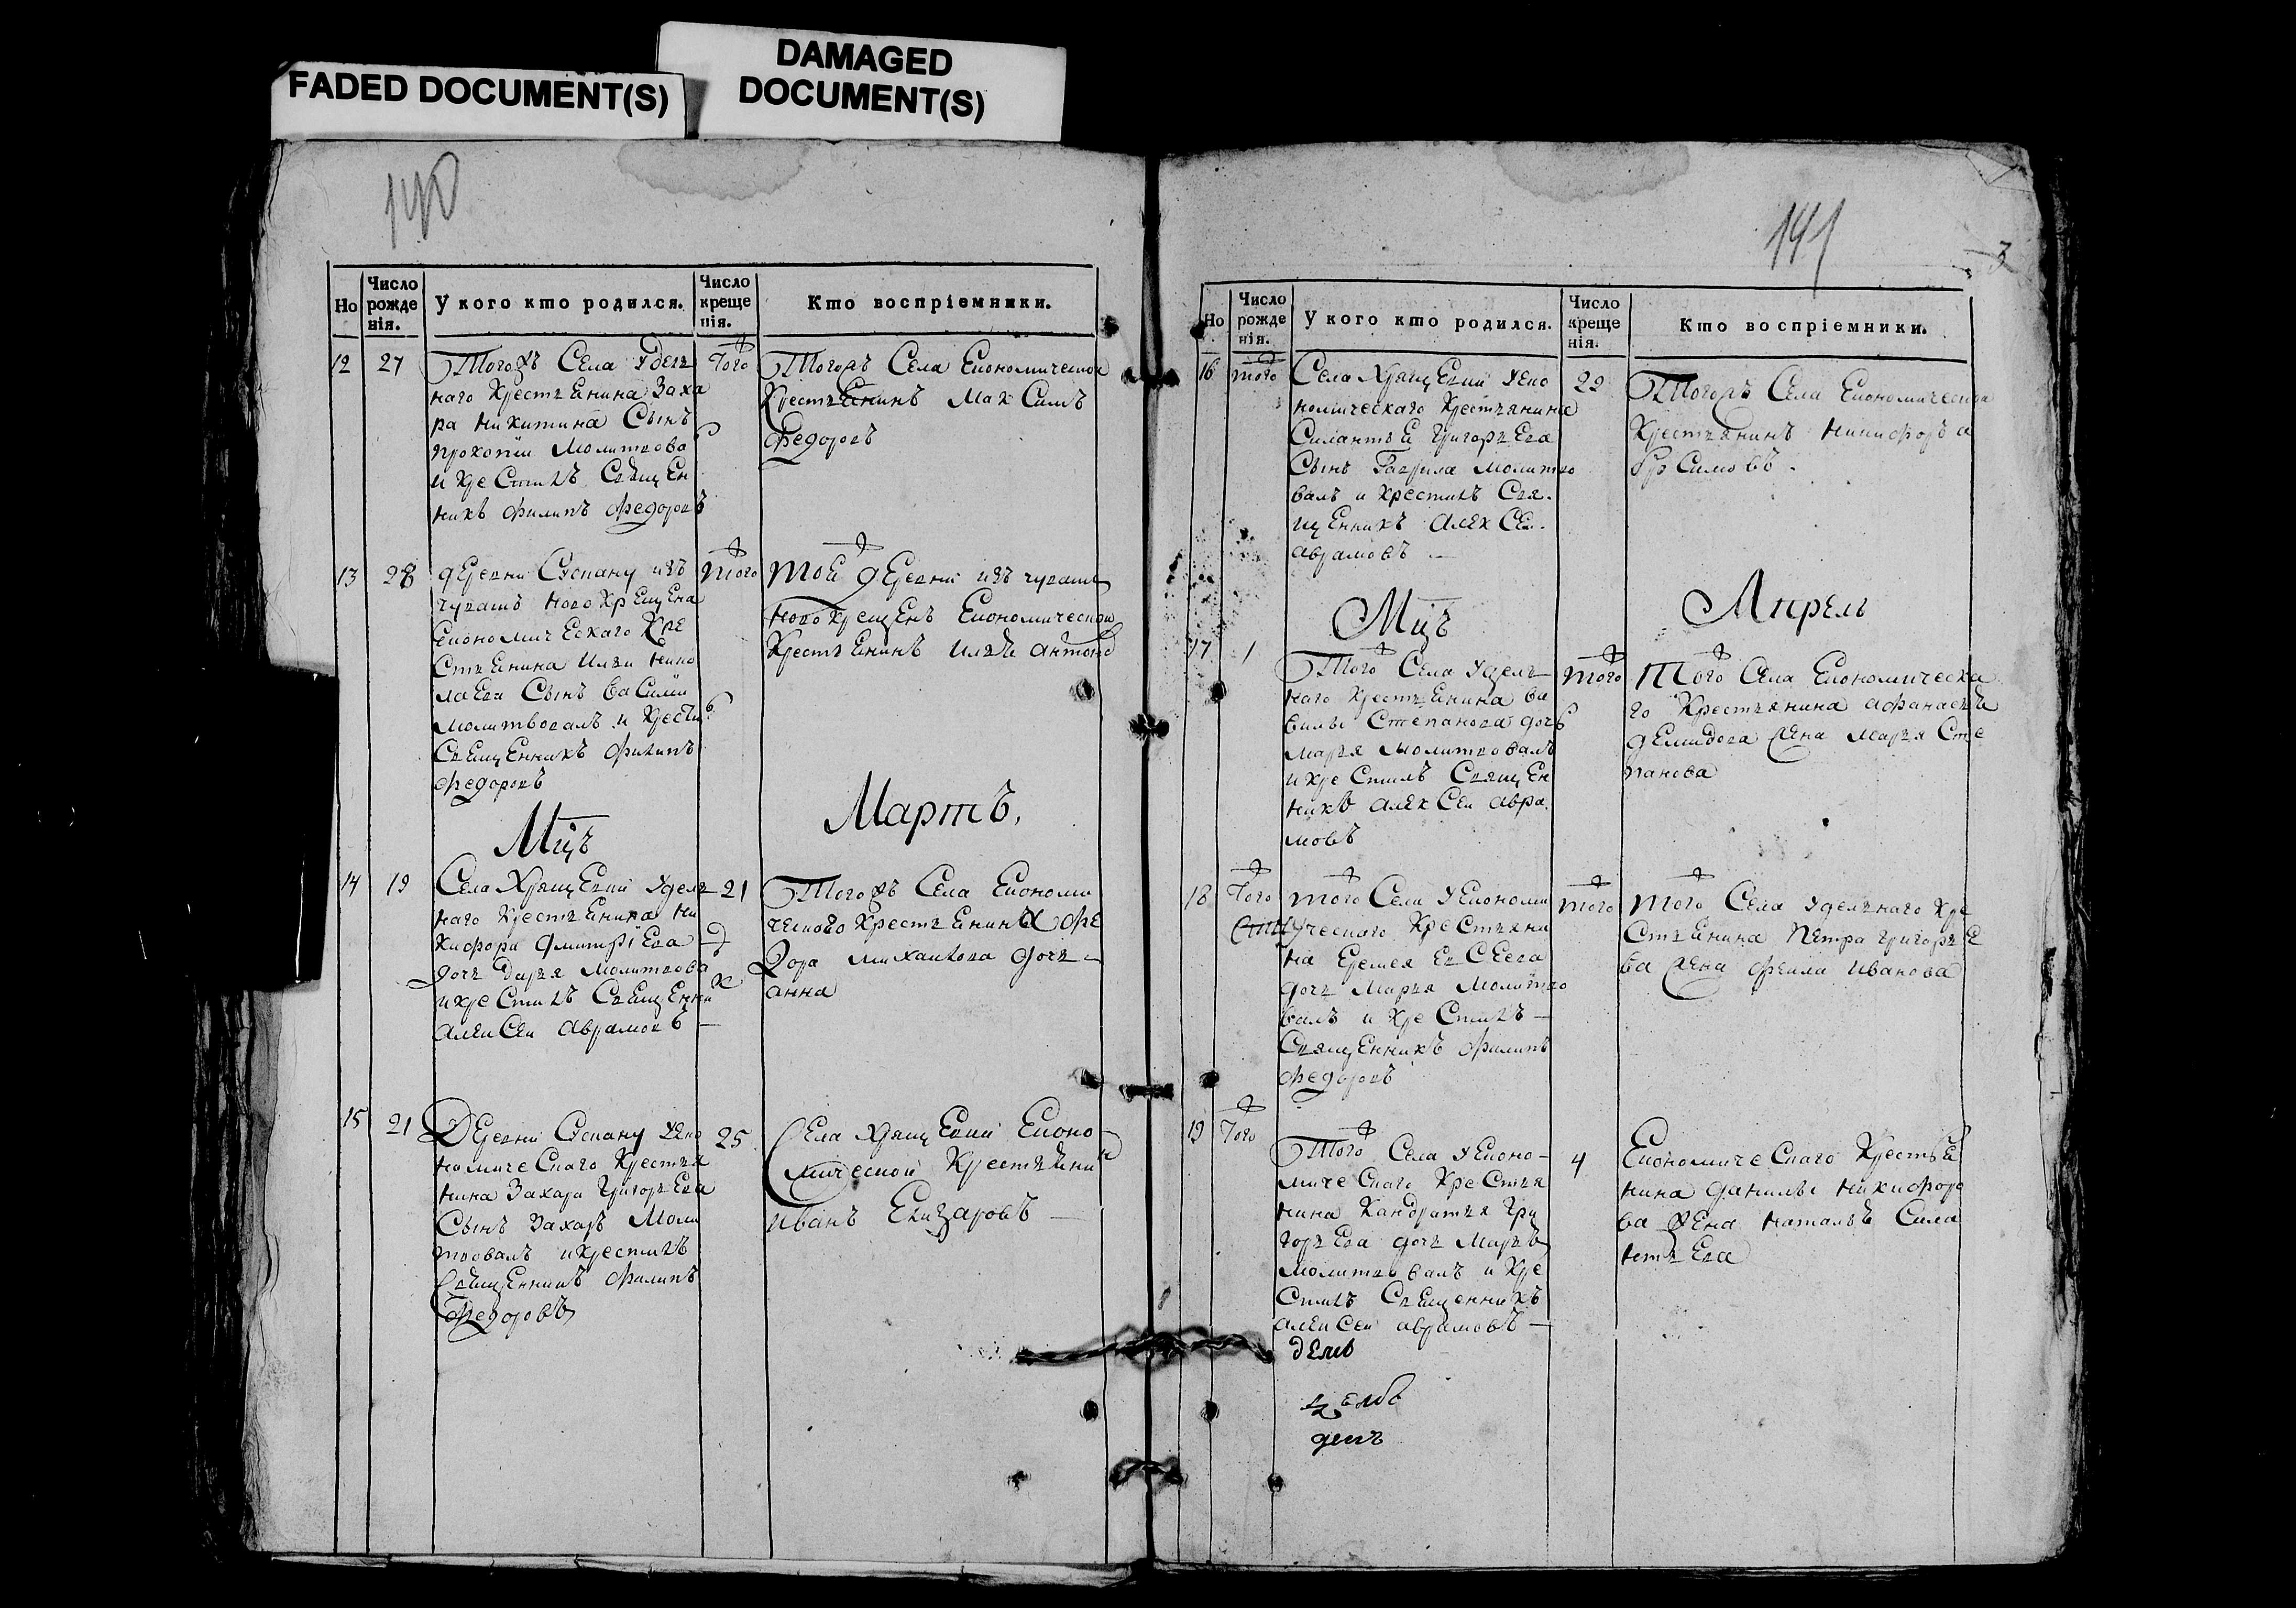 FADED DOCUMENT(S)
DAMAGED
DOCUMENT(S)
140
Но
Число рожденія.
У кого кто родился.
Число крещенія.
Кто воспріемники.
12 27
Тогожъ Села Удел
наго Крестьенина Заха
ра Никитина Сынъ
прокопіи Молитвова
и крестилъ Свѣщен
никъ Филипъ Федоровъ
того
Тогожъ Села Економическои
Крестьенинъ Максимъ
Федоровъ
13 28
деревни Сускану изъ
чувашъ новокрещена
Економическаго Кре
стьенина Ильи Нико
лаева Сынъ Василіи
молитвовалъ и крести
Священникъ Филипъ
Федоровъ
того
Тои деревни изъ чуваш
новокрещенъ Економическои
Крестьенинъ Илья Антоно
Мцъ
Мартъ,
14 19
Села Хрящевки Удел
наго Крестьенина Ни
кифора Дмитріева
дочь Дарья Молитвова
и крестилъ Священни
Алексеи Аврамовъ
21
Тогожъ Села Економи
ческого Крестьенина Фе
дора Михаилова дочь
анна
15 21
Деревни Сускану Уеко
номическаго Крестья
нина Захара Григорьева
Сынъ Захаръ Моли
твовалъ и крестилъ
Свѣщенникъ Филипъ
Федоровъ
25
Села Хрящевки Еконо
мическои Крестьянинъ
Иванъ Елизаровъ
141
3
Но
Число рожденія.
У кого кто родился.
Число крещенія.
Кто воспріемники.
16 того
Села Хрящевки Уеко
номическаго Крестьянина
Силантьи Григорьева
Сынъ Гаврила Молитво
валъ и крестилъ Свя
щенникъ Алексеи
Аврамовъ
22
Тогожъ Села Економическои
Крестьянинъ Никифоръ
Мцъ
Апрель
17 1
Того Села Удел
наго Крестьенина Ва
вилы Степанова дочь
Марья Молитвовалъ
и крестилъ Священ
никъ Алексеи Авра
мовъ
того
Того Села Економическа
го Крестьянина Афанасья
Демидова жена Марья Сте
панова
18 того
того Села Уекономи
ческаго Крестьяни
на Еремея Евсеева
дочь Марья Молитво
валъ и крестилъ
Священникъ Филипъ
Федоровъ
того
того Села Уделнаго Кре
стьенина Петра Григорье
ва жена Фекла Иванова
19 того
Того Села Уеконо
мическаго Крестья
нина Кандратья Гри
горьева дочь Марья
Молитвовалъ и кре
стилъ Священникъ
Алексеи Аврамовъ
4
Економическаго Крестье
нина Данилы Никифоро
ва жена Наталья Сила
нтьева